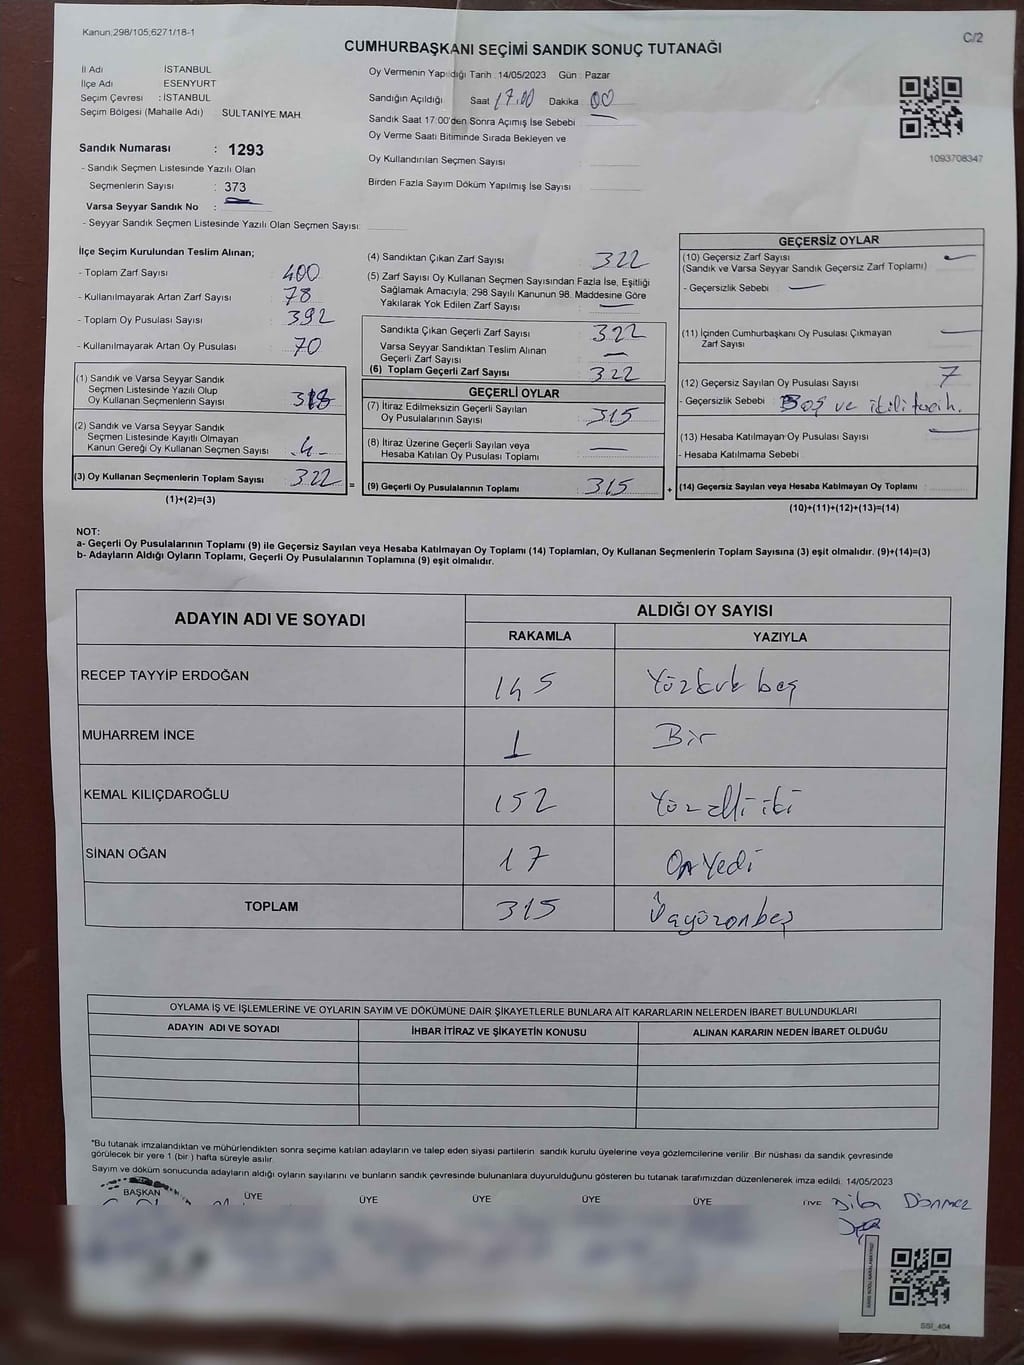 Kanun;298/105;6271/18-1
C/2
CUMHURBAŞKANI SEÇİMİ SANDIK SONUÇ TUTANAĞI
İl Adı İSTANBUL
İlçe Adı ESENYURT
Seçim Çevresi : İSTANBUL
Seçim Bölgesi (Mahalle Adı) SULTANİYE MAH.
Oy Vermenin Yapıldığı Tarih : 14/05/2023 Gün : Pazar
Sandığın Açıldığı Saat 17.00 Dakika 00
Sandık Saat 17:00'den Sonra Açımış İse Sebebi
Oy Verme Saati Bitiminde Sırada Bekleyen ve
Oy Kullandırılan Seçmen Sayısı
Birden Fazla Sayım Döküm Yapılmış İse Sayısı
1093708347
Sandık Numarası : 1293
- Sandık Seçmen Listesinde Yazılı Olan
Seçmenlerin Sayısı : 373
Varsa Seyyar Sandık No :
- Seyyar Sandık Seçmen Listesinde Yazılı Olan Seçmen Sayısı:
İlçe Seçim Kurulundan Teslim Alınan;
- Toplam Zarf Sayısı : 400
- Kullanılmayarak Artan Zarf Sayısı : 78
- Toplam Oy Pusulası Sayısı : 392
- Kullanılmayarak Artan Oy Pusulası : 70
(1) Sandık ve Varsa Seyyar Sandık
Seçmen Listesinde Yazılı Olup
Oy Kullanan Seçmenlerin Sayısı : 318
(2) Sandık ve Varsa Seyyar Sandık
Seçmen Listesinde Kayıtlı Olmayan
Kanun Gereği Oy Kullanan Seçmen Sayısı : 4
(3) Oy Kullanan Seçmenlerin Toplam Sayısı : 322
(1)+(2)=(3)
(4) Sandıktan Çıkan Zarf Sayısı : 322
(5) Zarf Sayısı Oy Kullanan Seçmen Sayısından Fazla İse, Eşitliği
Sağlamak Amacıyla; 298 Sayılı Kanunun 98. Maddesine Göre
Yakılarak Yok Edilen Zarf Sayısı : —
Sandıkta Çıkan Geçerli Zarf Sayısı : 322
Varsa Seyyar Sandıktan Teslim Alınan
Geçerli Zarf Sayısı : —
(6) Toplam Geçerli Zarf Sayısı : 322
GEÇERLİ OYLAR
(7) İtiraz Edilmeksizin Geçerli Sayılan
Oy Pusulalarının Sayısı : 315
(8) İtiraz Üzerine Geçerli Sayılan veya
Hesaba Katılan Oy Pusulası Toplamı : —
= (9) Geçerli Oy Pusulalarının Toplamı : 315
GEÇERSİZ OYLAR
(10) Geçersiz Zarf Sayısı —
(Sandık ve Varsa Seyyar Sandık Geçersiz Zarf Toplamı)
- Geçersizlik Sebebi : —
(11) İçinden Cumhurbaşkanı Oy Pusulası Çıkmayan
Zarf Sayısı —
(12) Geçersiz Sayılan Oy Pusulası Sayısı 7
- Geçersizlik Sebebi : Boş ve ikili tercih.
(13) Hesaba Katılmayan Oy Pusulası Sayısı —
- Hesaba Katılmama Sebebi
+ (14) Geçersiz Sayılan veya Hesaba Katılmayan Oy Toplamı :
(10)+(11)+(12)+(13)=(14)
NOT:
a- Geçerli Oy Pusulalarının Toplamı (9) ile Geçersiz Sayılan veya Hesaba Katılmayan Oy Toplamı (14) Toplamları, Oy Kullanan Seçmenlerin Toplam Sayısına (3) eşit olmalıdır. (9)+(14)=(3)
b- Adayların Aldığı Oyların Toplamı, Geçerli Oy Pusulalarının Toplamına (9) eşit olmalıdır.
ADAYIN ADI VE SOYADI
ALDIĞI OY SAYISI
RAKAMLA YAZIYLA
RECEP TAYYİP ERDOĞAN 145 Yüzkırk beş
MUHARREM İNCE 1 Bir
KEMAL KILIÇDAROĞLU 152 Yüz elli iki
SİNAN OĞAN 17 On Yedi
TOPLAM 315 Üçyüzonbeş
OYLAMA İŞ VE İŞLEMLERİNE VE OYLARIN SAYIM VE DÖKÜMÜNE DAİR ŞİKAYETLERLE BUNLARA AİT KARARLARIN NELERDEN İBARET BULUNDUKLARI
ADAYIN ADI VE SOYADI İHBAR İTİRAZ VE ŞİKAYETİN KONUSU ALINAN KARARIN NEDEN İBARET OLDUĞU
*Bu tutanak imzalandıktan ve mühürlendikten sonra seçime katılan adayların ve talep eden siyasi partilerin sandık kurulu üyelerine veya gözlemcilerine verilir. Bir nüshası da sandık çevresinde
görülecek bir yere 1 (bir ) hafta süreyle asılır.
Sayım ve döküm sonucunda adayların aldığı oyların sayılarını ve bunların sandık çevresinde bulunanlara duyurulduğunu gösteren bu tutanak tarafımızdan düzenlenerek imza edildi. 14/05/2023
BAŞKAN ÜYE ÜYE ÜYE ÜYE ÜYE Dönmez
SSI_404